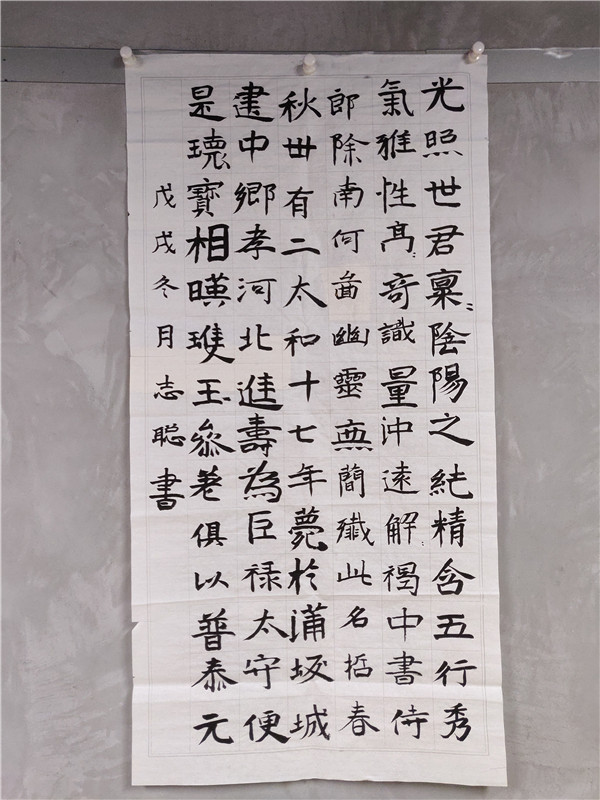 光照世君稟陰陽之純精含五行秀
氣雅性高奇識量沖遠解褐中書侍
郎除南何啚幽靈無簡殲此名哲春
秋卌有二太和十七年薨於蒲坂城
建中鄉孝河北進壽為巨禄太守便
是瓌寶相暎瓊玉參差俱以普泰元
戊戌冬月志聪書